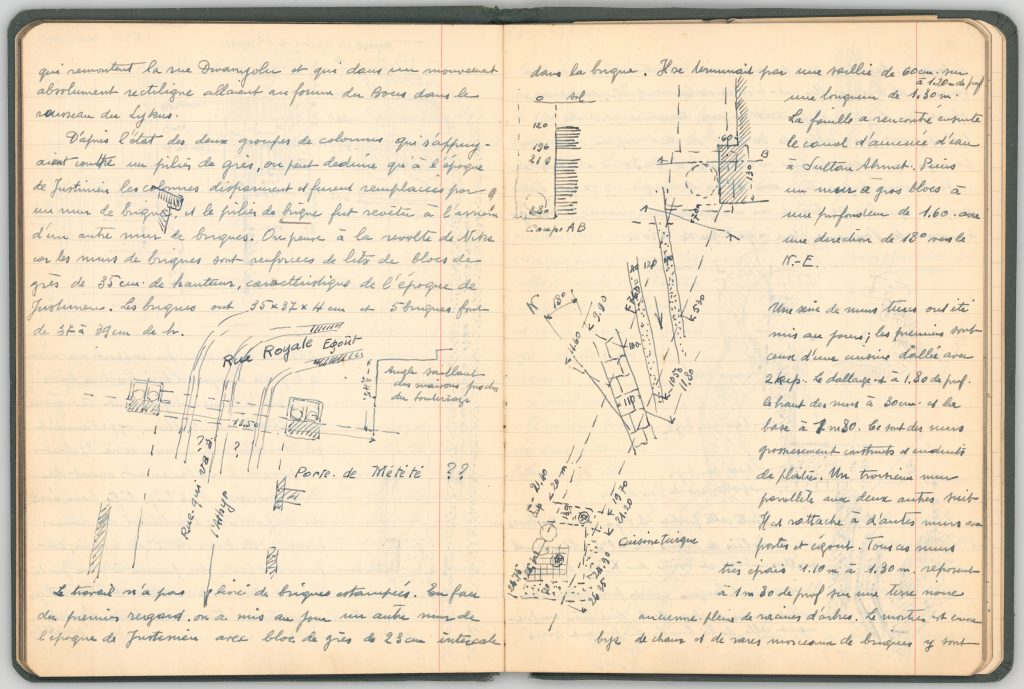 qui remontant la rue Divanyolu et qui dans un mouvement
absolument rectiligne allaient au forum du Bovis dans le
ruisseau du Lykus.
D'après l'état des deux groupes de colonnes qui s'appuy-
aient contre un pilier de grès, on peut déduire qu'à l'époque
de Justinien les colonnes disparurent et furent remplacées par
un mur de briques et le pilier de brique fut revêtu à l'arrière
d'un autre mur de briques. On pense à la revolte de Nika
car les murs de briques sont renforcés de lits de blocs de
grès de 35 cm. de hauteur, caractéristique de l'époque de
Justinien. Les briques ont 35 x 37 x 4 cm et 5 briques font
de 37 à 39 cm de h.
Rue Royale Egoût
Angle saillant
des maisons proches
du souterrain
13.50
? ?
Rue qui va
l'Atayo
Porte de Mété ??
Le travail n'a pas de briques estampées. En face
du premier regard on a mis au jour un autre mur de
l'époque de Justinien avec bloc de grès de 23 cm intercalé
dans la brique. Il se terminait par une saillie de 60 cm. sur
à 1.20 m de prof
une longueur de 1.30 m.
La fouille a rencontré ensuite
le canal d'amenée d'eau
à Sultan Ahmet. Puis
un mur à gros blocs à
une profondeur de 1.60 avec
une direction de 18° vers le
N.-E.
0 sol
120
196
210
280
Coupe AB
A B
60
130
N
180
9.90
11.60
120
110
5.70
10.50
11.80
Une série de murs turcs ont été
mis au jour; les premiers sont
ceux d'une cuisine dallée avec
2 küp. Le dallage est à 1.80 de prof.
le haut des murs à 30 cm. et la
base à 1 m 30. Ce sont des murs
grossièrement construits et enduits
de plâtre. Un troisième mur
parallèle aux deux autres suit
Il se rattache à d'autres murs avec
portes et égout. Tous ces murs
très épais 1.10 m à 1.30 m. reposent
à 1 m 30 de prof sur une terre noire
ancienne pleine de racines d'arbres. Le mortier est
de chaux et de rares morceaux de briques y sont
21.40
20 m
19.70
21.20
Cuisine turque
24.75
24.90
26.35